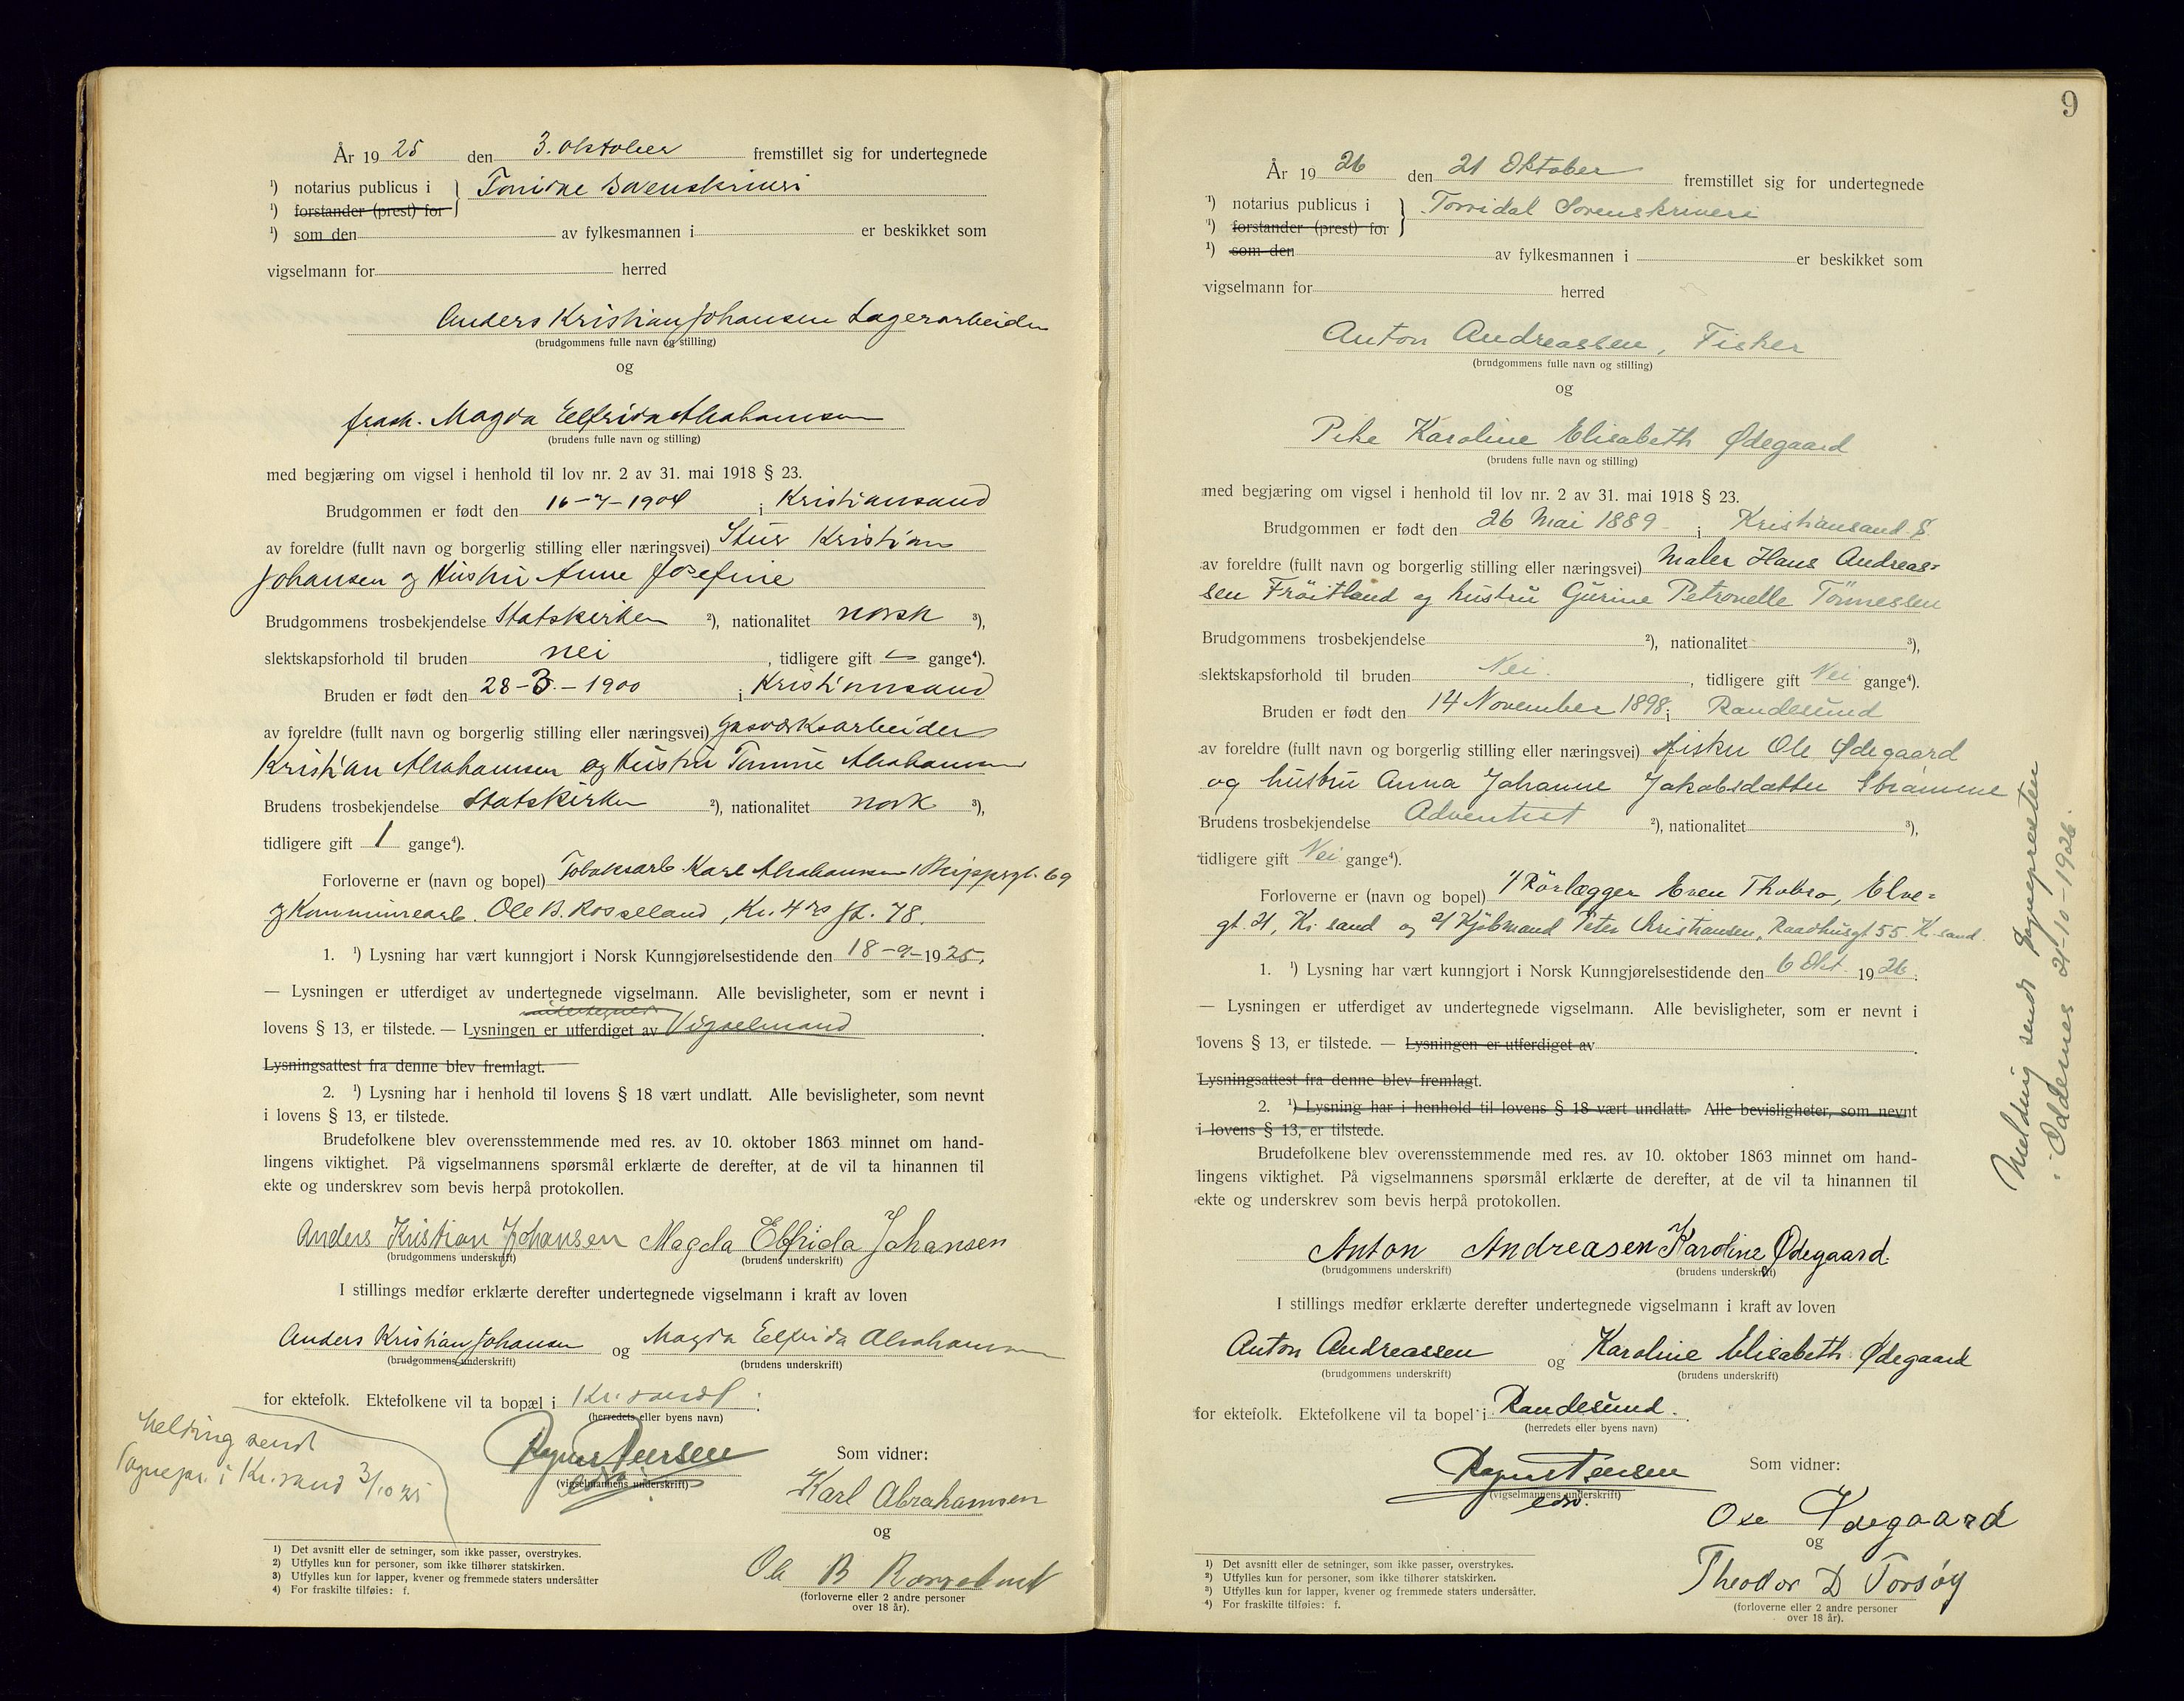 År 1925 den 3. oktober fremstillet sig for undertegnede
¹) notarius publicus i } Torridal Sorenskriveri
¹) forstander (prest) for
¹) som den av fylkesmannen i er beskikket som
vigselmann for herred
Anders Kristian Johansen Lagerarbeider
(brudgommens fulle navn og stilling)
og
frask. Magda Elfrida Abrahamsen
(brudens fulle navn og stilling)
med begjæring om vigsel i henhold til lov nr. 2 av 31. mai 1918 § 23.
Brudgommen er født den 16-7-1904 i Kristiansand
av foreldre (fullt navn og borgerlig stilling eller næringsvei) Kristian
Johansen og Hustru Anne Josefine
Brudgommens trosbekjendelse Statskirken ²), nationalitet norsk ³),
slektskapsforhold til bruden nei, tidligere gift gange⁴).
Bruden er født den 28-3.-1900 i Kristiansand
av foreldre (fullt navn og borgerlig stilling eller næringsvei) gasværksarbeider
Kristian Abrahamsen og Hustru Tomine Abrahamsen
Brudens trosbekjendelse Statskirken ²), nationalitet norsk ³),
tidligere gift 1 gange⁴).
Forloverne er (navn og bopel) Tobaksarb. Karl Abrahamsen, Skippergt. 69
og Kommunearb. Ole B. Rosseland, Kr. 4des gt. 78.
1. ¹) Lysning har vært kunngjort i Norsk Kunngjørelsestidende den 18-9-1925.
— Lysningen er utferdiget av undertegnede vigselmann. Alle bevisligheter, som er nevnt i
undertegnede
lovens § 13, er tilstede. — Lysningen er utferdiget av Vigselmand.
Lysningsattest fra denne blev fremlagt.
2. ¹) Lysning har i henhold til lovens § 18 vært undlatt. Alle bevisligheter, som nevnt
i lovens § 13, er tilstede.
Brudefolkene blev overensstemmende med res. av 10. oktober 1863 minnet om hand-
lingens viktighet. På vigselmannens spørsmål erklærte de derefter, at de vil ta hinannen til
ekte og underskrev som bevis herpå protokollen.
Anders Kristian Johansen Magda Elfrida Johansen
(brudgommens underskrift) (brudens underskrift)
I stillings medfør erklærte derefter undertegnede vigselmann i kraft av loven
Anders Kristian Johansen og Magda Elfrida Abrahamsen
(brudgommens underskrift) (brudens underskrift)
for ektefolk. Ektefolkene vil ta bopæl i Kr.sand.
(herredets eller byens navn)
Melding sendt
Sognepr. i Kr.sand 3/10 25
Som vidner:
(vigselmannens underskrift)
Karl Abrahamsen
og
Ole B Rosseland
(forloverne eller 2 andre personer
over 18 år).
1) Det avsnitt eller de setninger, som ikke passer, overstrykes.
2) Utfylles kun for personer, som ikke tilhører statskirken.
3) Utfylles kun for lapper, kvener og fremmede staters undersåtter
4) For fraskilte tilføies: f.
9
År 1926 den 21 Oktober fremstillet sig for undertegnede
¹) notarius publicus i } Torridal Sorenskriveri
¹) forstander (prest) for
¹) som den av fylkesmannen i er beskikket som
vigselmann for herred
Anton Andreassen, Fisker
(brudgommens fulle navn og stilling)
og
Pike Karoline Elisabeth Ødegaard
(brudens fulle navn og stilling)
med begjæring om vigsel i henhold til lov nr. 2 av 31. mai 1918 § 23.
Brudgommen er født den 26 Mai 1889 i Kristiansand S.
av foreldre (fullt navn og borgerlig stilling eller næringsvei) Maler Hans Andreas-
sen Fröitland og hustru Gurine Petronelle Tönnessen
Brudgommens trosbekjendelse ²), nationalitet ³),
slektskapsforhold til bruden Nei., tidligere gift Nei gange⁴).
Bruden er født den 14 November 1898 i Randesund
av foreldre (fullt navn og borgerlig stilling eller næringsvei) fisker Ole Ødegaard
og hustru Anna Johanne Jakobsdatter Strömme
Brudens trosbekjendelse Adventist ²), nationalitet ³),
tidligere gift Nei gange⁴).
Forloverne er (navn og bopel) 1/ Rörlægger Even Thobro, Elve-
gt. 21, Kr. sand og 2/ Kjöbmand Peter Christiansen, Raadhusgt 55. Kr. sand.
1. ¹) Lysning har vært kunngjort i Norsk Kunngjørelsestidende den 6 Okt. 1926.
— Lysningen er utferdiget av undertegnede vigselmann. Alle bevisligheter, som er nevnt i
lovens § 13, er tilstede. — Lysningen er utferdiget av
Lysningsattest fra denne blev fremlagt.
2. ¹) Lysning har i henhold til lovens § 18 vært undlatt. Alle bevisligheter, som nevnt
i lovens § 13, er tilstede.
Brudefolkene blev overensstemmende med res. av 10. oktober 1863 minnet om hand-
lingens viktighet. På vigselmannens spørsmål erklærte de derefter, at de vil ta hinannen til
ekte og underskrev som bevis herpå protokollen.
Anton Andreasen Karoline Ødegaard.
(brudgommens underskrift) (brudens underskrift)
I stillings medfør erklærte derefter undertegnede vigselmann i kraft av loven
Anton Andreassen og Karoline Elisabeth Ødegaard
(brudgommens underskrift) (brudens underskrift)
for ektefolk. Ektefolkene vil ta bopel i Randesund.
(herredets eller byens navn)
Som vidner:
(vigselmannens underskrift)
Ose Ødegaard
og
Theodor D Torsöy
(forloverne eller 2 andre personer
over 18 år).
1) Det avsnitt eller de setninger, som ikke passer, overstrykes.
2) Utfylles kun for personer, som ikke tilhører statskirken.
3) Utfylles kun for lapper, kvener og fremmede staters undersåtter.
4) For fraskilte tilføies: f.
Melding sendt sognepresten
i Oddernes 21-10-1926.